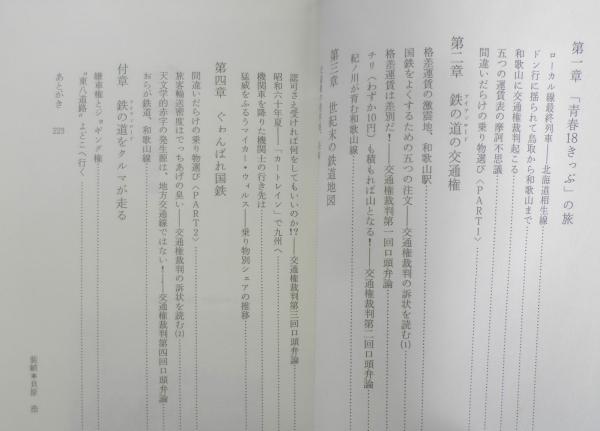 第一章 「青春18きっぷ」の旅
ローカル線最終列車――北海道相生線
ドン行に揺られて鳥取から和歌山まで
和歌山に交通権裁判起こる
五つの運賃表の摩訶不思議
間違いだらけの乗り物選び〈PART1〉
第二章 鉄の道の交通権
アイアンロード
格差運賃の激震地、和歌山駅
国鉄をよくするための五つの注文――交通権裁判の訴状を読む(1)
格差運賃は差別だ！――交通権裁判第一回口頭弁論
チリ(わずか10円)も積もれば山となる！――交通権裁判第二回口頭弁論
紀ノ川が育む和歌山線
第三章 世紀末の鉄道地図
認可さえ受ければ何をしてもいいのか!?――交通権裁判第三回口頭弁論
昭和六十年夏――「カートレイン」で九州へ
機関車を降りた機関士の行き先は
猛威をふるうマイカー・ウィルス――乗り物別シェアの推移
第四章 ぐゎんばれ国鉄
間違いだらけの乗り物選び〈PART2〉
旅客輸送密度はでっちあげの臭い――交通権裁判の訴状を読む(2)
天文学的赤字の発生源は、地方交通線ではない！――交通権裁判第四回口頭弁論
おらが鉄道、和歌山線
付章 鉄の道をクルマが走る
アイアンロード
嫌車権とジョギング権
"東八道路"よどこへ行く
あとがき 223
装幀＊貝原 浩